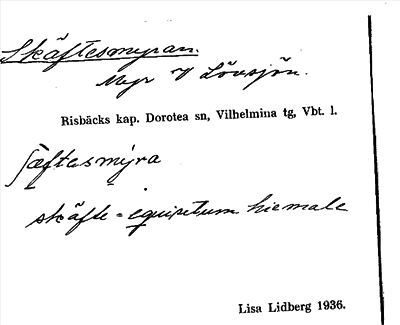 Skäftesmyran.
Myr V Lövsjön.
Risbäcks kap. Dorotea sn, Vilhelmina tg, Vbt. l.
ʃæftesmyra
skäfte = equisetum hiemale
Lisa Lidberg 1936.